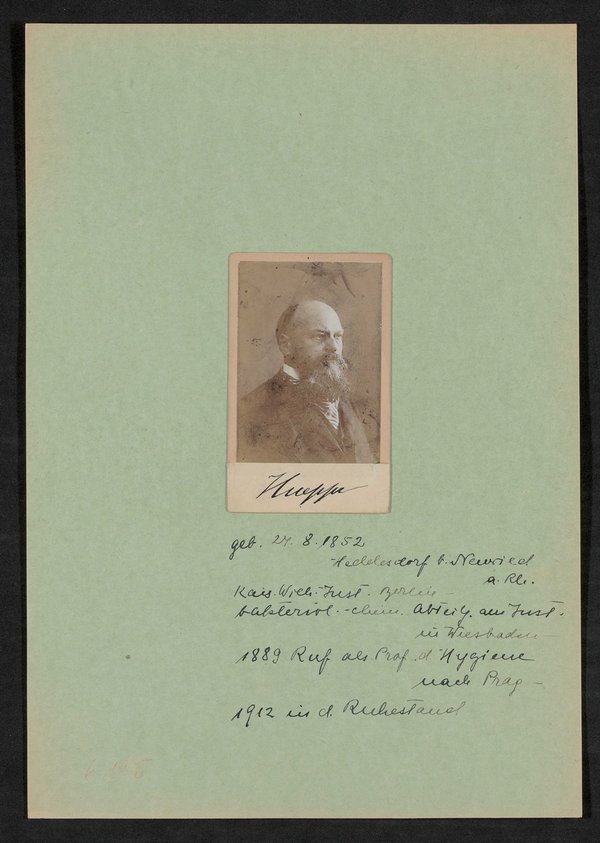 Hueppe
geb. 24. 8. 1852
Heddesdorf b. Neuwied
a. Rh.
Kais. Wilh. Inst. Berlin -
bakteriol. - chem. Abteilg. am Inst.
in Wiesbaden -
1889 Ruf als Prof. d. Hygiene
nach Prag -
1912 in d. Ruhestand